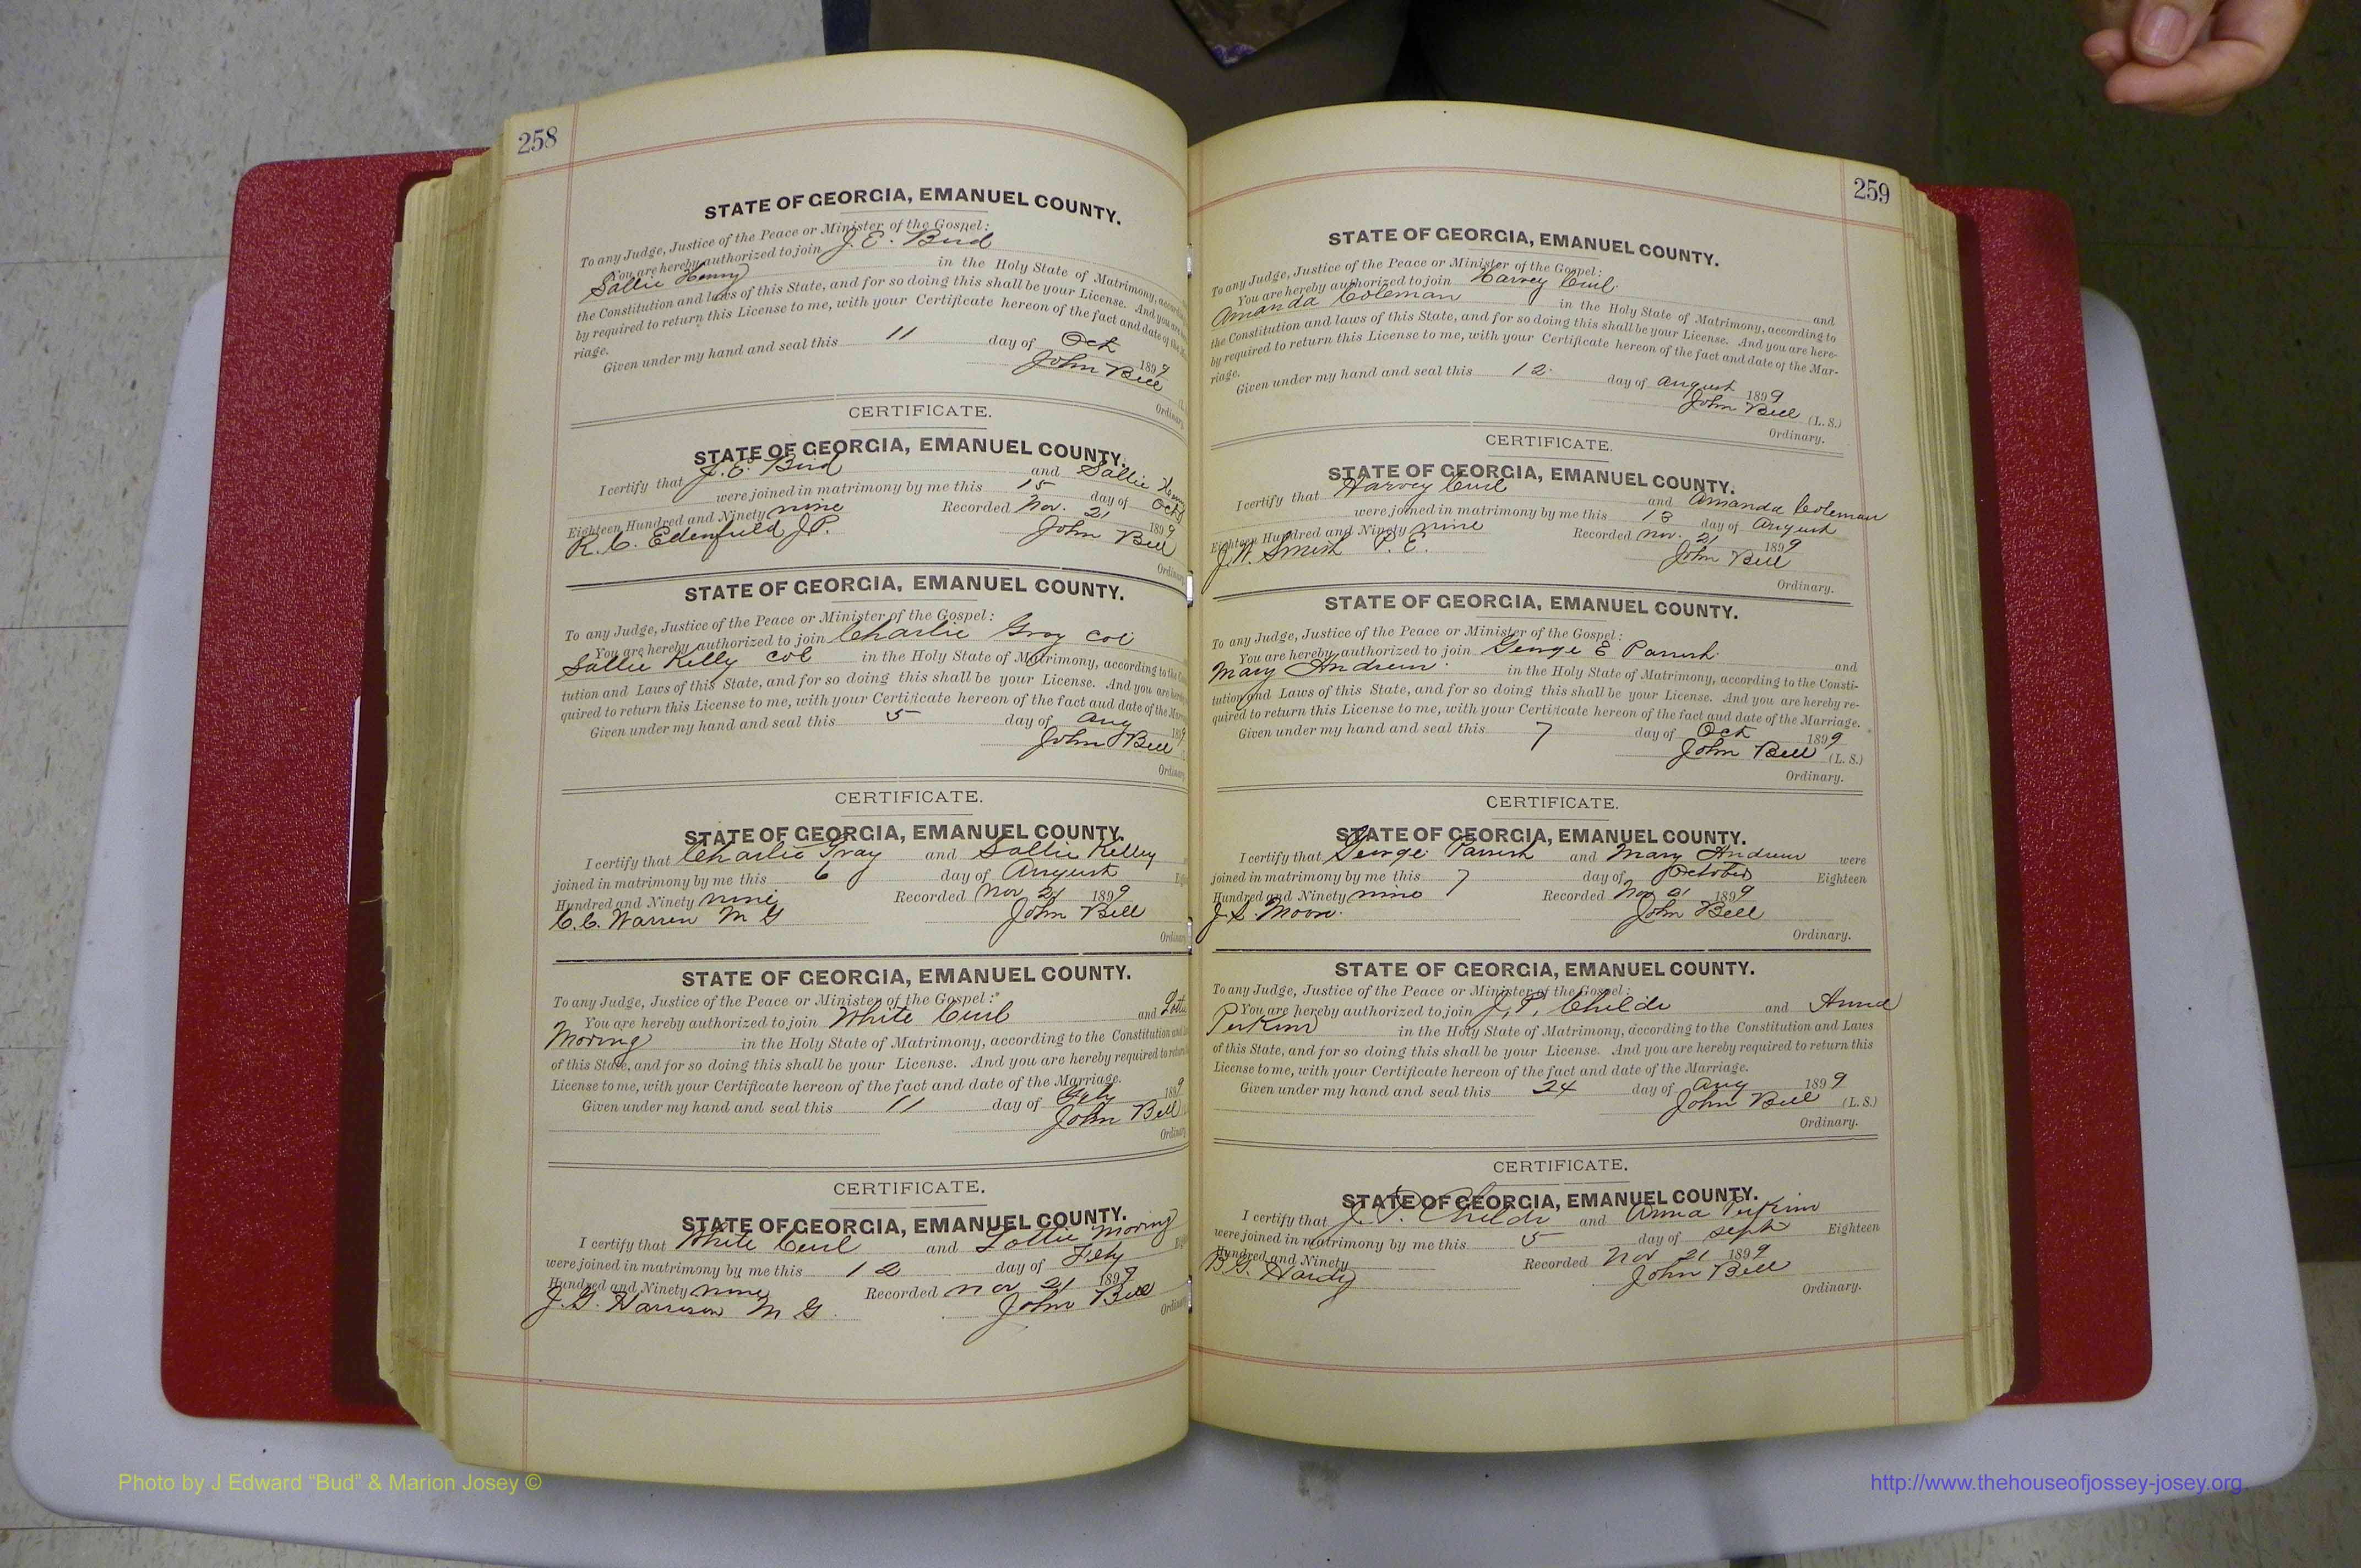 258
STATE OF GEORGIA, EMANUEL COUNTY.
To any Judge, Justice of the Peace or Minister of the Gospel:
You are hereby authorized to join J. E. Bird
Sallie Henry in the Holy State of Matrimony,
the Constitution and laws of this State, and for so doing this shall be your License. And you are
by required to return this License to me, with your Certificate hereon of the fact and date of the
riage.
Given under my hand and seal this 11 day of Oct 1899
John Bell
CERTIFICATE.
STATE OF GEORGIA, EMANUEL COUNTY.
I certify that J. E. Bird and Sallie
were joined in matrimony by me this 15 day of Oct
Eighteen Hundred and Ninety nine Recorded Nov. 21 1899
R. C. Edenfield J.P. John Bell
STATE OF GEORGIA, EMANUEL COUNTY.
To any Judge, Justice of the Peace or Minister of the Gospel:
You are hereby authorized to join Charlie Gray col
Sallie Kelly col in the Holy State of Matrimony, according to the
tution and Laws of this State, and for so doing this shall be your License. And you are hereby
quired to return this License to me, with your Certificate hereon of the fact aud date of the
Given under my hand and seal this 5 day of Aug 1899
John Bell
Ordinary
CERTIFICATE.
STATE OF GEORGIA, EMANUEL COUNTY.
I certify that Charlie Gray and Sallie Kelley
joined in matrimony by me this 6 day of August
Hundred and Ninety nine Recorded Nov 21 1899
C. C. Warren M G John Bell
STATE OF GEORGIA, EMANUEL COUNTY.
To any Judge, Justice of the Peace or Minister of the Gospel:
You are hereby authorized to join White Curl and
Moring in the Holy State of Matrimony, according to the Constitution
of this State, and for so doing this shall be your License. And you are hereby required to return
License to me, with your Certificate hereon of the fact and date of the Marriage.
Given under my hand and seal this 11 day of Feby 1899
John Bell
CERTIFICATE.
STATE OF GEORGIA, EMANUEL COUNTY.
I certify that White Curl and Lottie Moring
were joined in matrimony by me this 12 day of Feby
Hundred and Ninety nine Recorded Nov 21 1899
J. G. Harrison M G John Bell
259
STATE OF GEORGIA, EMANUEL COUNTY.
To any Judge, Justice of the Peace or Minister of the Gospel:
You are hereby authorized to join Harvey Curl and
Amanda Coleman in the Holy State of Matrimony, according to
the Constitution and laws of this State, and for so doing this shall be your License. And you are here-
by required to return this License to me, with your Certificate hereon of the fact and date of the Mar-
riage.
Given under my hand and seal this 12 day of August 1899
John Bell (L. S.)
Ordinary.
CERTIFICATE.
STATE OF GEORGIA, EMANUEL COUNTY.
I certify that Harvey Curl and Amanda Coleman
were joined in matrimony by me this 13 day of August
Eighteen Hundred and Ninety nine Recorded Nov. 21 1899
Smith John Bell
Ordinary.
STATE OF GEORGIA, EMANUEL COUNTY.
To any Judge, Justice of the Peace or Minister of the Gospel:
You are hereby authorized to join George E Parrish and
Mary Andrew in the Holy State of Matrimony, according to the Consti-
tution and Laws of this State, and for so doing this shall be your License. And you are hereby re-
quired to return this License to me, with your Certificate hereon of the fact aud date of the Marriage.
Given under my hand and seal this 7 day of Oct 1899
John Bell (L. S.)
Ordinary.
CERTIFICATE.
STATE OF GEORGIA, EMANUEL COUNTY.
I certify that George Parrish and Mary Andrew were
joined in matrimony by me this 7 day of October Eighteen
Hundred and Ninety nine Recorded Nov 21 1899
Moore John Bell
Ordinary.
STATE OF GEORGIA, EMANUEL COUNTY.
To any Judge, Justice of the Peace or Minister of the Gospel:
You are hereby authorized to join J. P. Childs and Anna
Perkins in the Holy State of Matrimony, according to the Constitution and Laws
of this State, and for so doing this shall be your License. And you are hereby required to return this
License to me, with your Certificate hereon of the fact and date of the Marriage.
Given under my hand and seal this 24 day of Aug 1899
John Bell (L. S.)
Ordinary.
CERTIFICATE.
STATE OF GEORGIA, EMANUEL COUNTY.
I certify that J. P. Childs and Anna Perkins
were joined in matrimony by me this 5 day of Sept Eighteen
Hundred and Ninety Recorded Nov 21 1899
Hardy John Bell
Ordinary.
Photo by J Edward “Bud” & Marion Josey ©
http://www.thehouseofjossey-josey.org